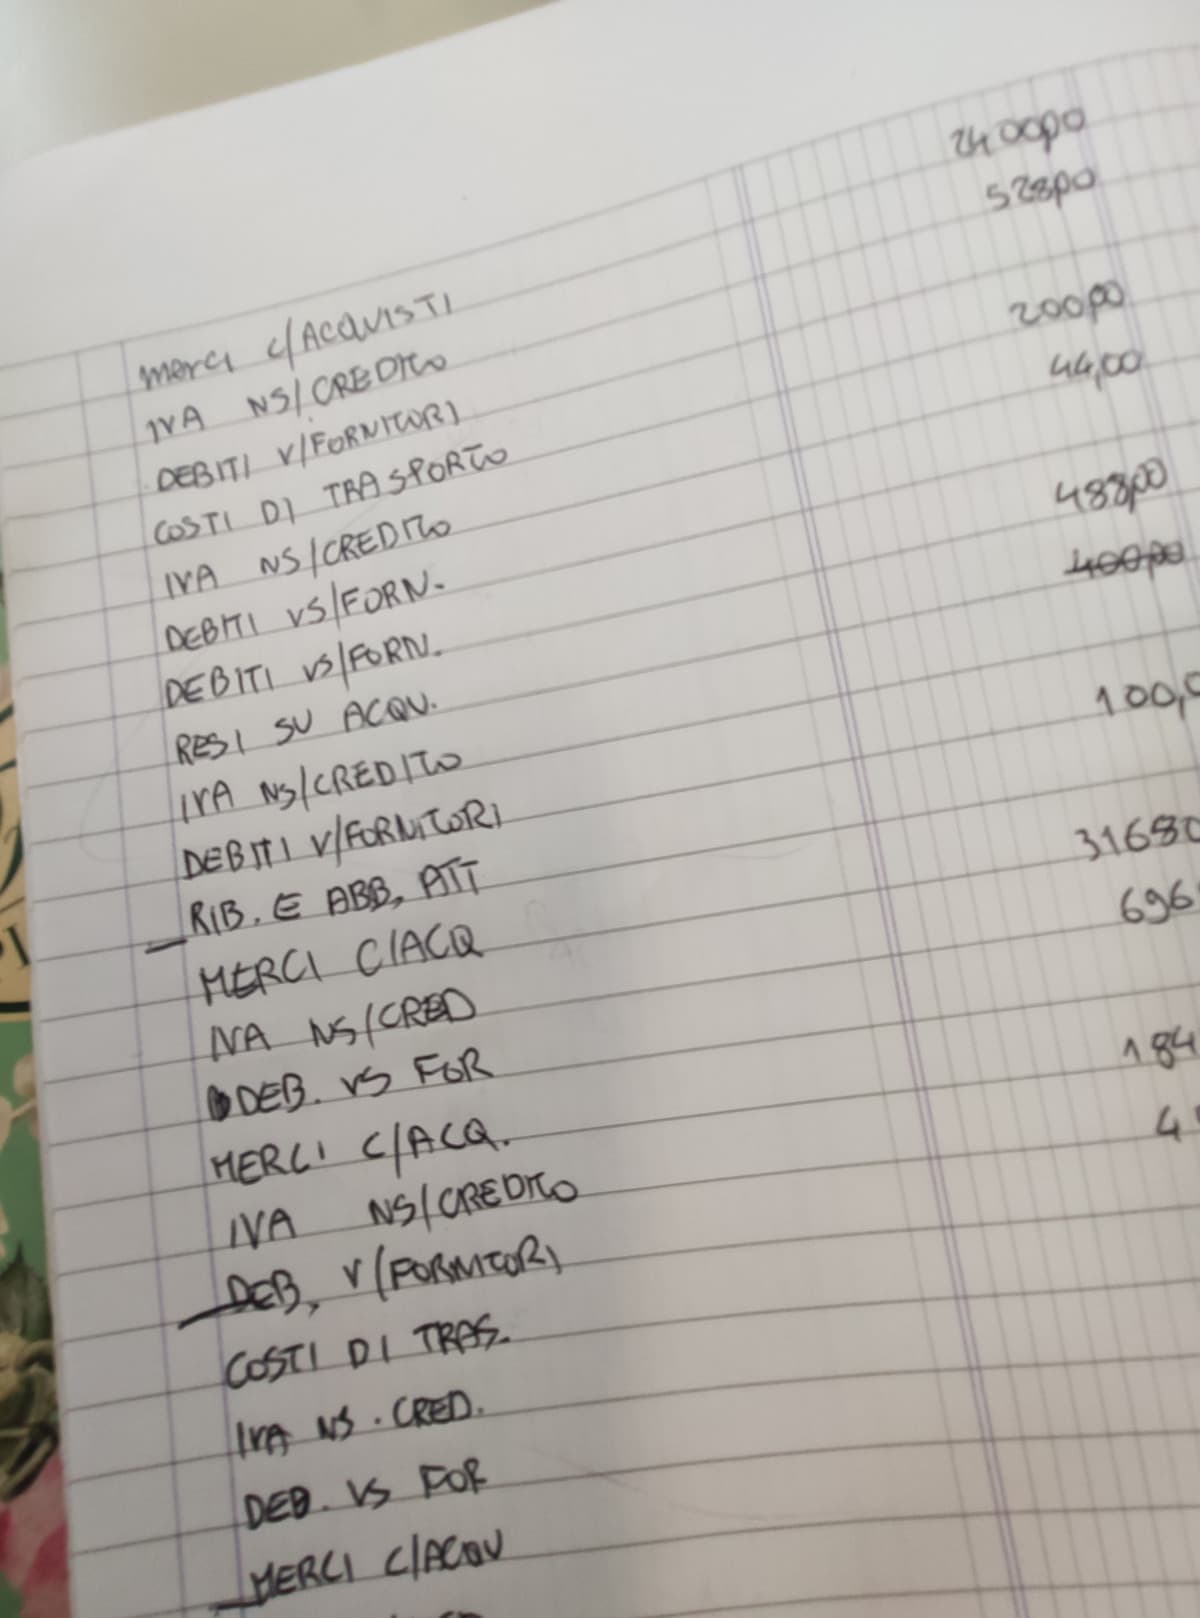 merci c/ACQUISTI 2400,00
IVA NS/CREDITO 528,00
DEBITI V/FORNITORI
COSTI DI TRASPORTO 200,00
IVA NS/CREDITO 44,00
DEBITI VS/FORN.
DEBITI VS/FORN. 488,00
RESI SU ACQU. 400,00
IVA NS/CREDITO
DEBITI V/FORNITORI 100,0
RIB. E ABB, ATT
MERCI C/ACQ 31680
IVA NS/CRED 696
DEB. VS FOR
MERCI C/ACQ. 184
IVA NS/CREDITO 4
DEB, V/FORNITORI
COSTI DI TRAS.
IVA NS. CRED.
DEB. VS FOR
MERCI C/ACQU